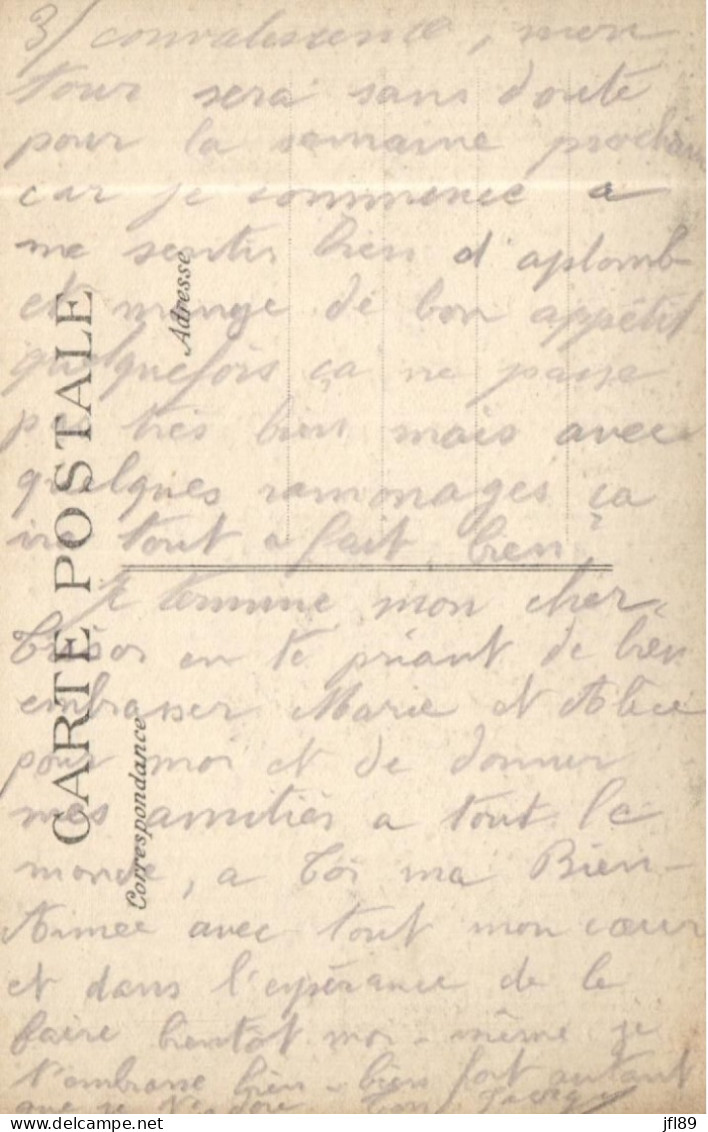 3/ convalescence, mon
tour sera sans doute
pour la semaine prochaine
car je commence a
me sentir bien d'aplomb
et mange de bon appétit
quelquefois ça ne passe
pas très bien mais avec
quelques ramonages ça
ira tout a fait bien,
Je termine mon cher
Trésor en te priant de bien
embrasser Marie et Alice
pour moi et de donner
mes amitiés a tout le
monde, a Toi ma Bien-
Aimée avec tout mon cœur
et dans l'espérance de le
faire bientôt moi-même je
t'embrasse bien-bien fort autant
que je t'adore Ton
CARTE POSTALE
Correspondance
Adresse
jfl89